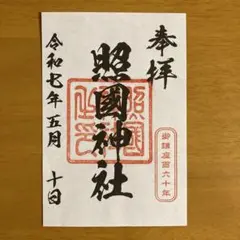 奉拝
御鎮座百六十年
照國神社
令和七年五月十日